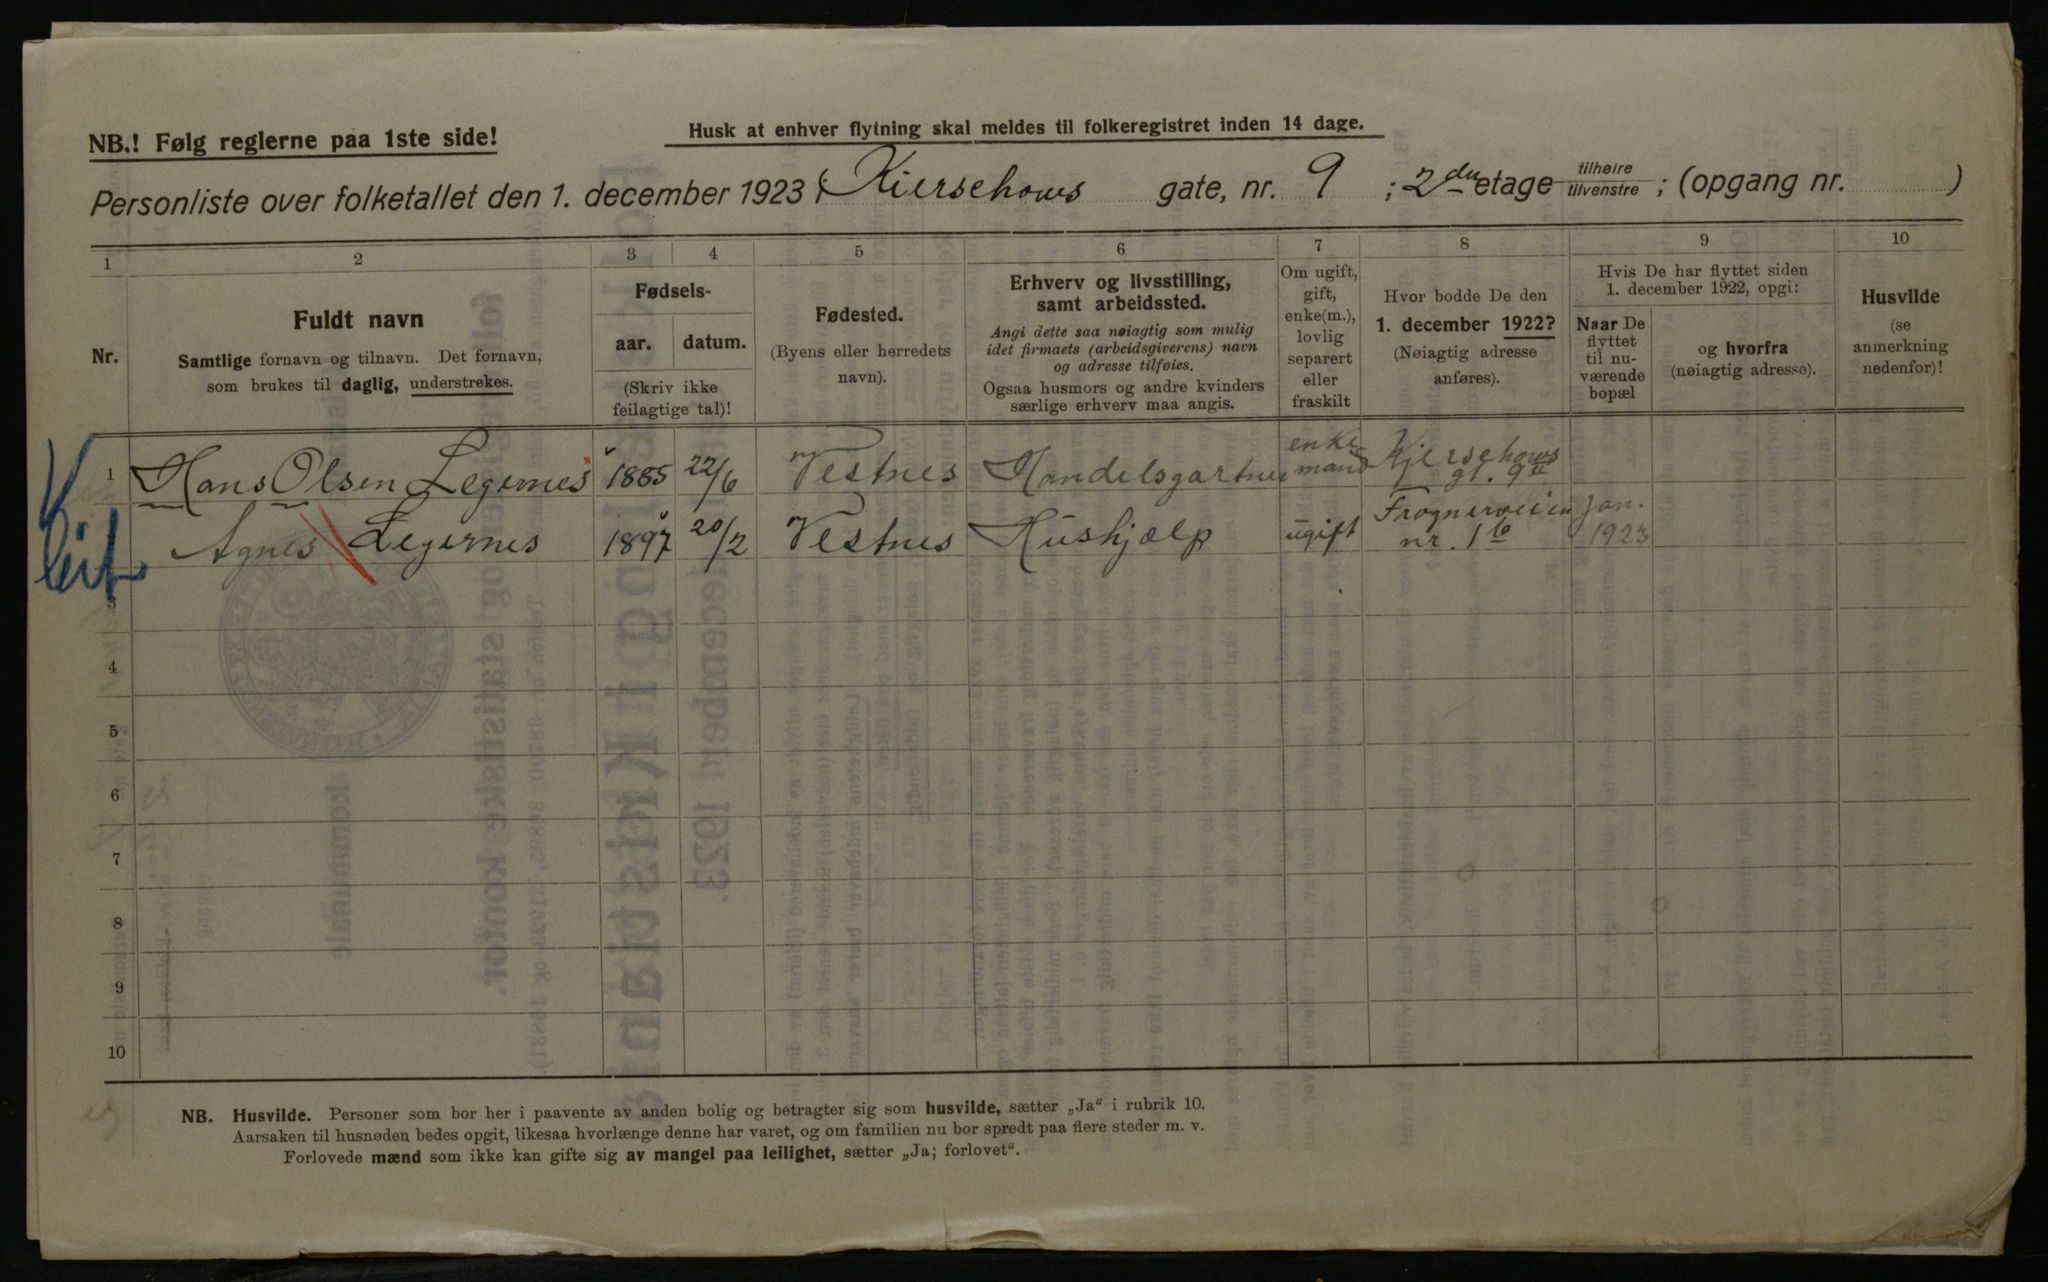 NB.! Følg reglerne paa 1ste side!
Husk at enhver flytning skal meldes til folkeregistret inden 14 dage.
Personliste over folketallet den 1. december 1923 (Kierschows gate, nr. 9 ; 2den etage tilhøire tilvenstre ; (opgang nr. )
1 2 3 4 5 6 7 8 9 10
Nr.
Fuldt navn
Samtlige fornavn og tilnavn. Det fornavn,
som brukes til daglig, understrekes.
Fødsels-
aar. datum.
(Skriv ikke
feilagtige tal)!
Fødested.
(Byens eller herredets
navn).
Erhverv og livsstilling,
samt arbeidssted.
Angi dette saa nøiagtig som mulig
idet firmaets (arbeidsgiverens) navn
og adresse tilføies.
Ogsaa husmors og andre kvinders
særlige erhverv maa angis.
Om ugift,
gift,
enke(m.),
lovlig
separert
eller
fraskilt
Hvor bodde De den
1. december 1922?
(Nøiagtig adresse
anføres).
Hvis De har flyttet siden
1. december 1922, opgi:
Naar De
flyttet
til nu-
værende
bopæl
og hvorfra
(nøiagtig adresse).
Husvilde
(se
anmerkning
nedenfor)!
1 Hans Olsen Legernes 1885 22/6 Vestnes Handelsgartner enke mand Kjerschows gt. 9
Agnes Legernes 1897 20/2 Vestnes Hushjælp ugift Frognerveien nr. 1 b Jan. 1923
3
4
5
6
7
8
9
10
NB. Husvilde. Personer som bor her i paavente av anden bolig og betragter sig som husvilde, sætter „Ja" i rubrik 10.
Aarsaken til husnøden bedes opgit, likesaa hvorlænge denne har varet, og om familien nu bor spredt paa flere steder m. v.
Forlovede mænd som ikke kan gifte sig av mangel paa leilighet, sætter „Ja; forlovet".